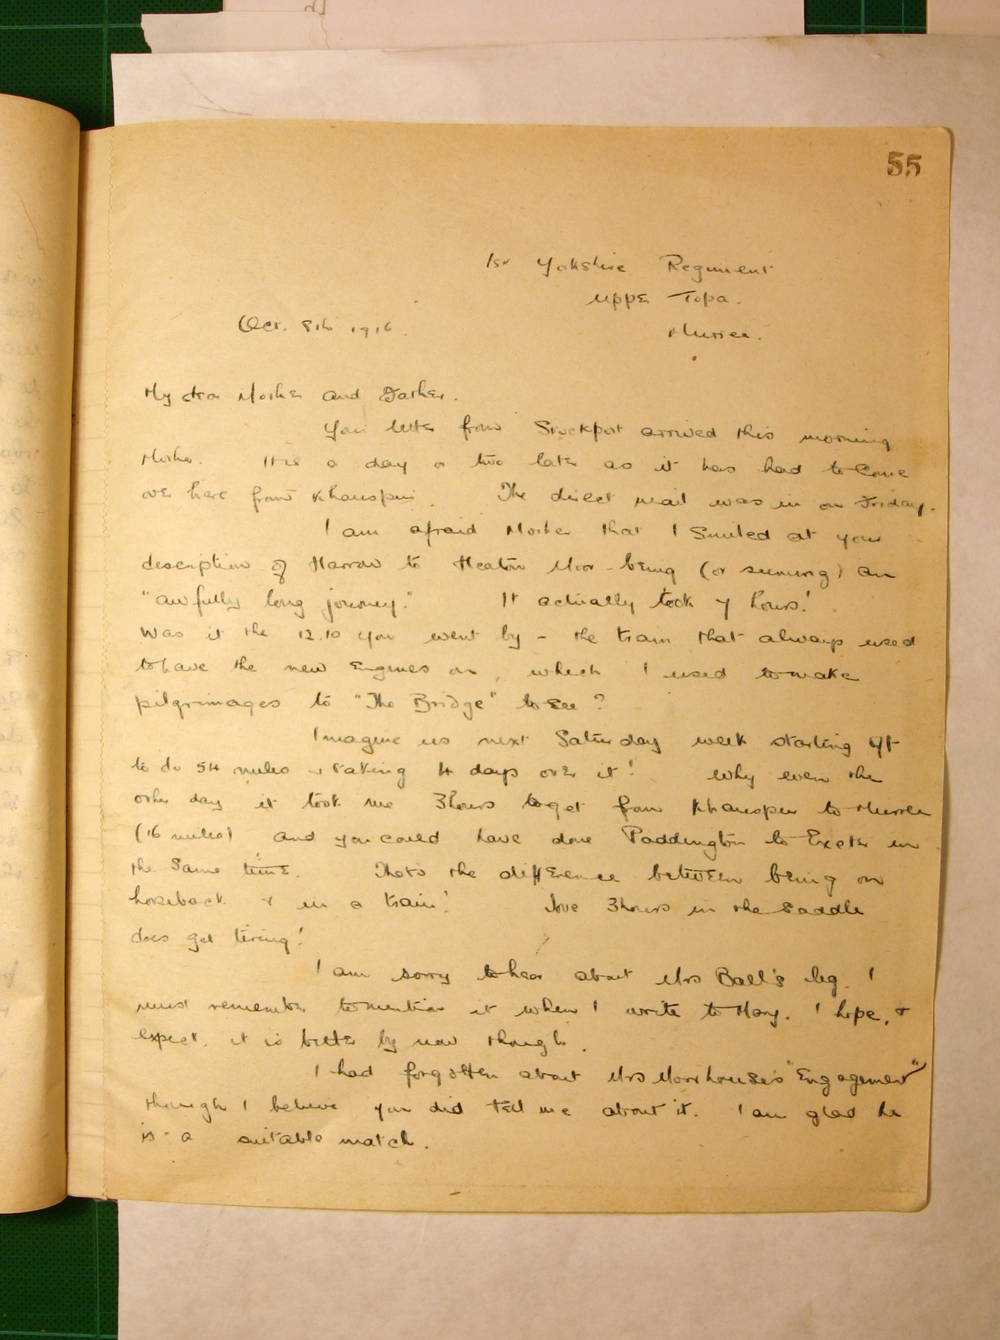 55
1st Yorkshire Regiment
Upper Topa.
Murree.
Oct. 8th 1916.
My dear Mother and Father.
Your letter from Stockport arrived this morning
Mother. It is a day or two later as it has had to come
over here from Khanspur. The direct mail was in on Friday.
I am afraid Mother that I smiled at your
description of Harrow to Heaton Moor being (or seeming) an
"awfully long journey." It actually took 4 hours!
Was it the 12.10 you went by - the train that always used
to have the new Engines on, which I used to make
pilgrimages to "The Bridge" to see?
Imagine us next Saturday week starting off
to do 54 miles & taking 4 days over it! Why even the
other day it took me 3 hours to get from Khanspur to Murree
(16 miles) and you could have done Paddington to Exeter in
the same time. That's the difference between being on
horseback & in a train! 3 hours in the saddle
does get tiring!
I am sorry to hear about Mrs Ball's leg. I
must remember to mention it when I write to Mary. I hope, &
expect, it is better by now though.
I had forgotten about Mrs Moorhouse's "Engagement"
though I believe you did tell me about it. I am glad he
is a suitable match.